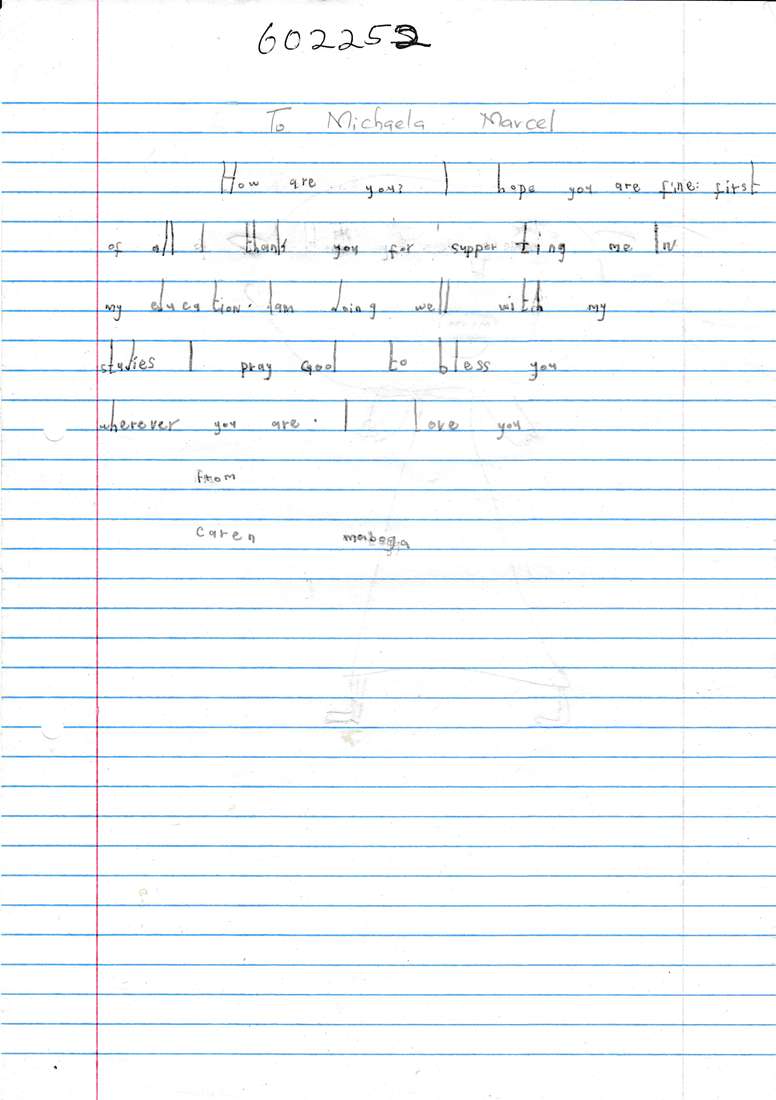 602252
To Michaela Marcel
How are you? I hope you are fine. first
of all I thank you for supporting me In
my education. Iam doing well with my
studies I pray God to bless you
wherever you are. I love you
from
Caren